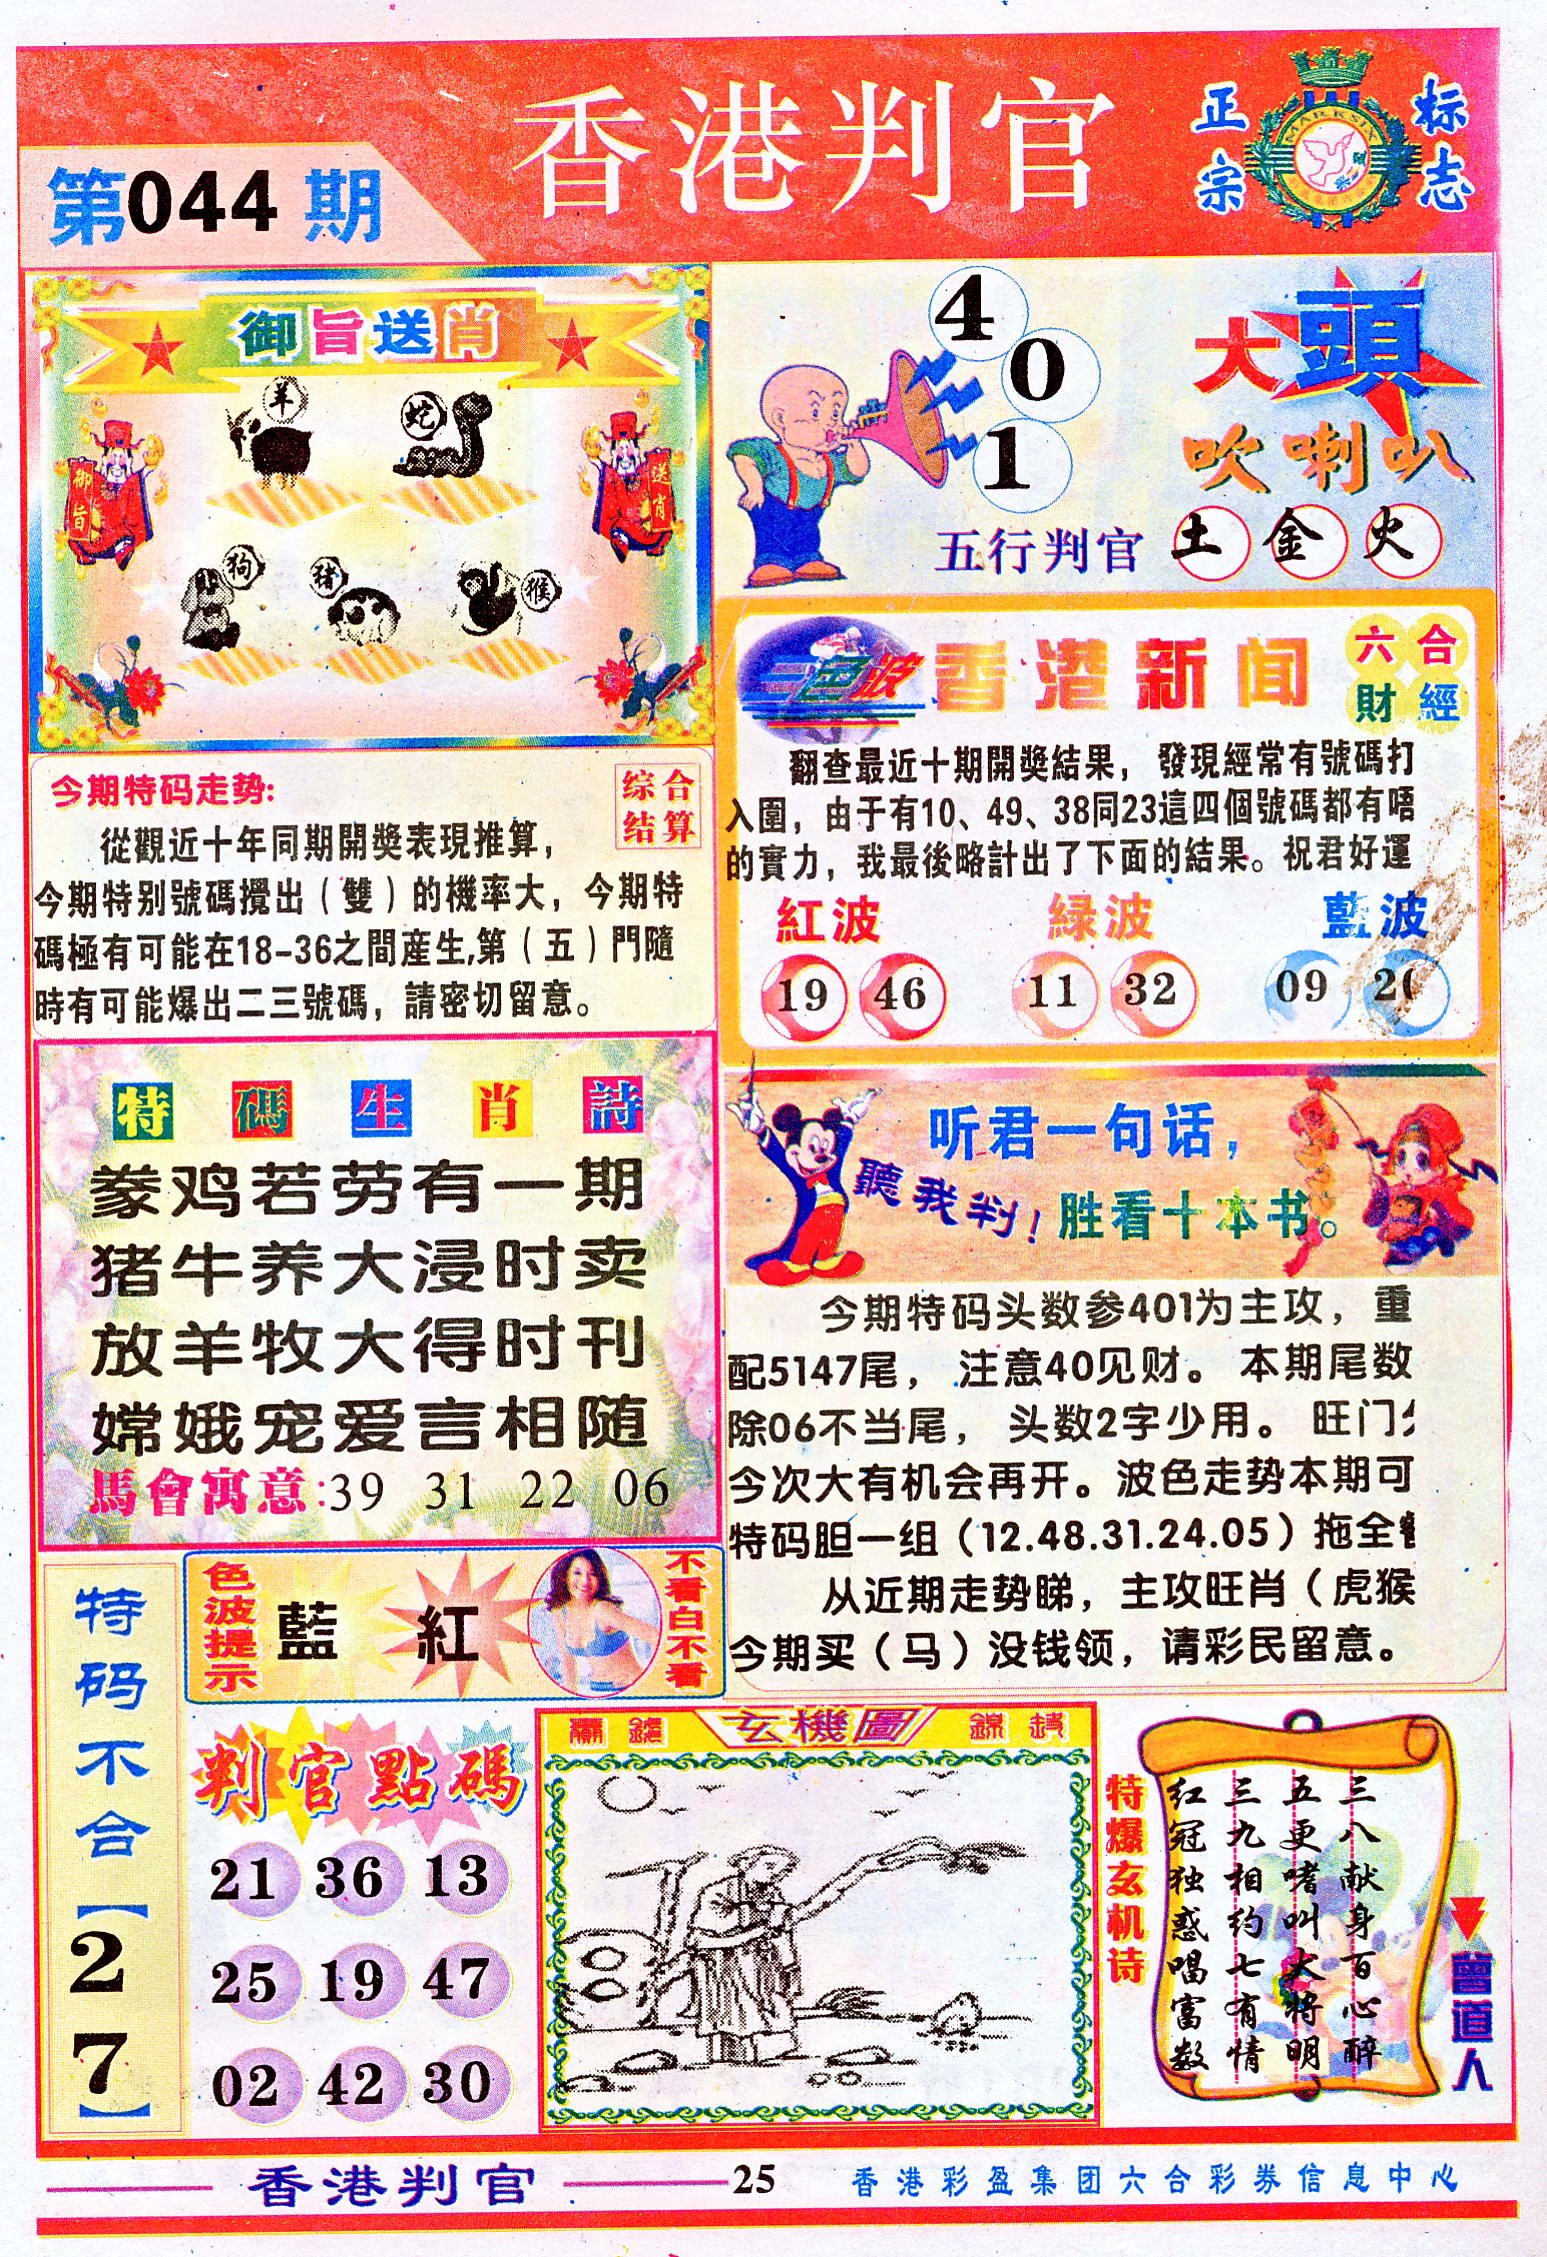 香港判官
正宗
标志
MARKSIX
第044期
御旨送肖
羊
蛇
御旨
送肖
狗
猪
猴
4
0
1
大頭
吹喇叭
五行判官 土 金 火
三色波
香港新闻
六合
財經
翻查最近十期開獎結果，發現經常有號碼打
入圍，由于有10、49、38同23這四個號碼都有唔
的實力，我最後略計出了下面的結果。祝君好運
紅波 緑波 藍波
19 46 11 32 09 20
今期特码走势:
综合
结算
從觀近十年同期開獎表現推算，
今期特别號碼攪出（雙）的機率大，今期特
碼極有可能在18-36之間産生,第（五）門隨
時有可能爆出二三號碼，請密切留意。
特碼生肖詩
豢鸡若劳有一期
猪牛养大浸时卖
放羊牧大得时刊
嫦娥宠爱言相随
馬會寓意:39 31 22 06
听君一句话，
聽我判！
胜看十本书。
今期特码头数参401为主攻，重
配5147尾，注意40见财。本期尾数
除06不当尾，头数2字少用。旺门
今次大有机会再开。波色走势本期可
特码胆一组（12.48.31.24.05）拖全
从近期走势睇，主攻旺肖（虎猴
今期买（马）没钱领，请彩民留意。
特码不合【27】
色波提示
藍 紅
不看白不看
判官點碼
21 36 13
25 19 47
02 42 30
玄機圖
特爆玄机诗
三八献身百心醉
五更嗜叫大将明
三九相约七有情
红冠独惑唱富数
曾道人
香港判官
25
香港彩盈集团六合彩券信息中心